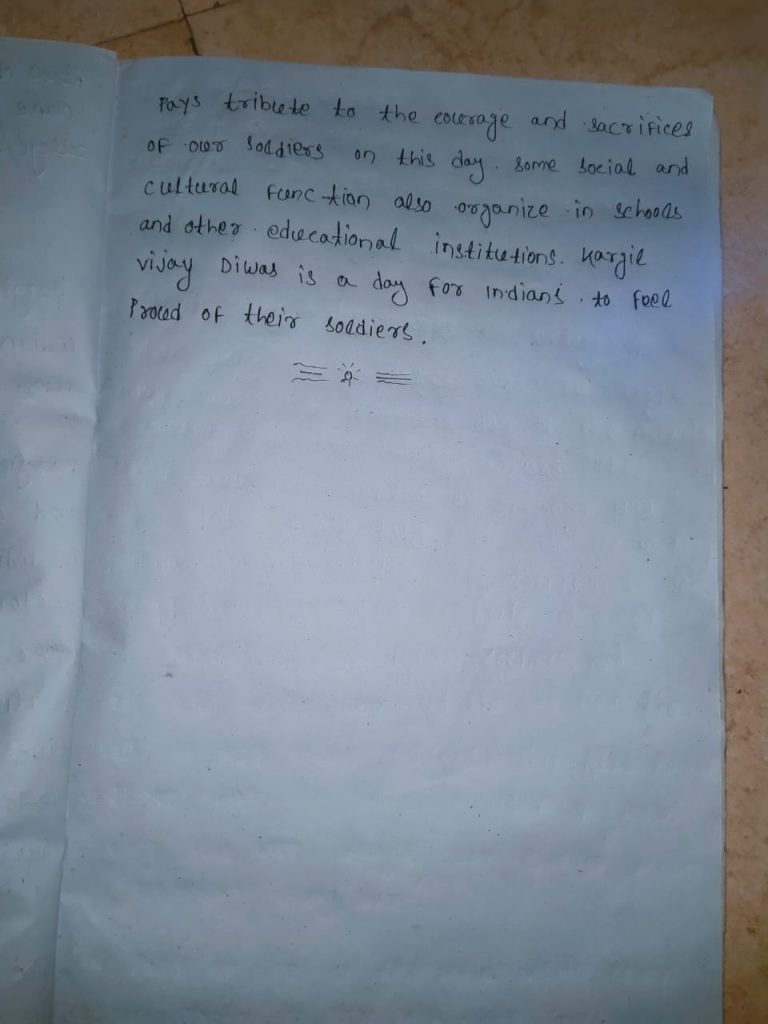 Pays tribute to the courage and sacrifices
of our soldiers on this day. Some social and
cultural function also organize in schools
and other educational institutions. Kargil
vijay Diwas is a day for Indians to feel
Proud of their soldiers.